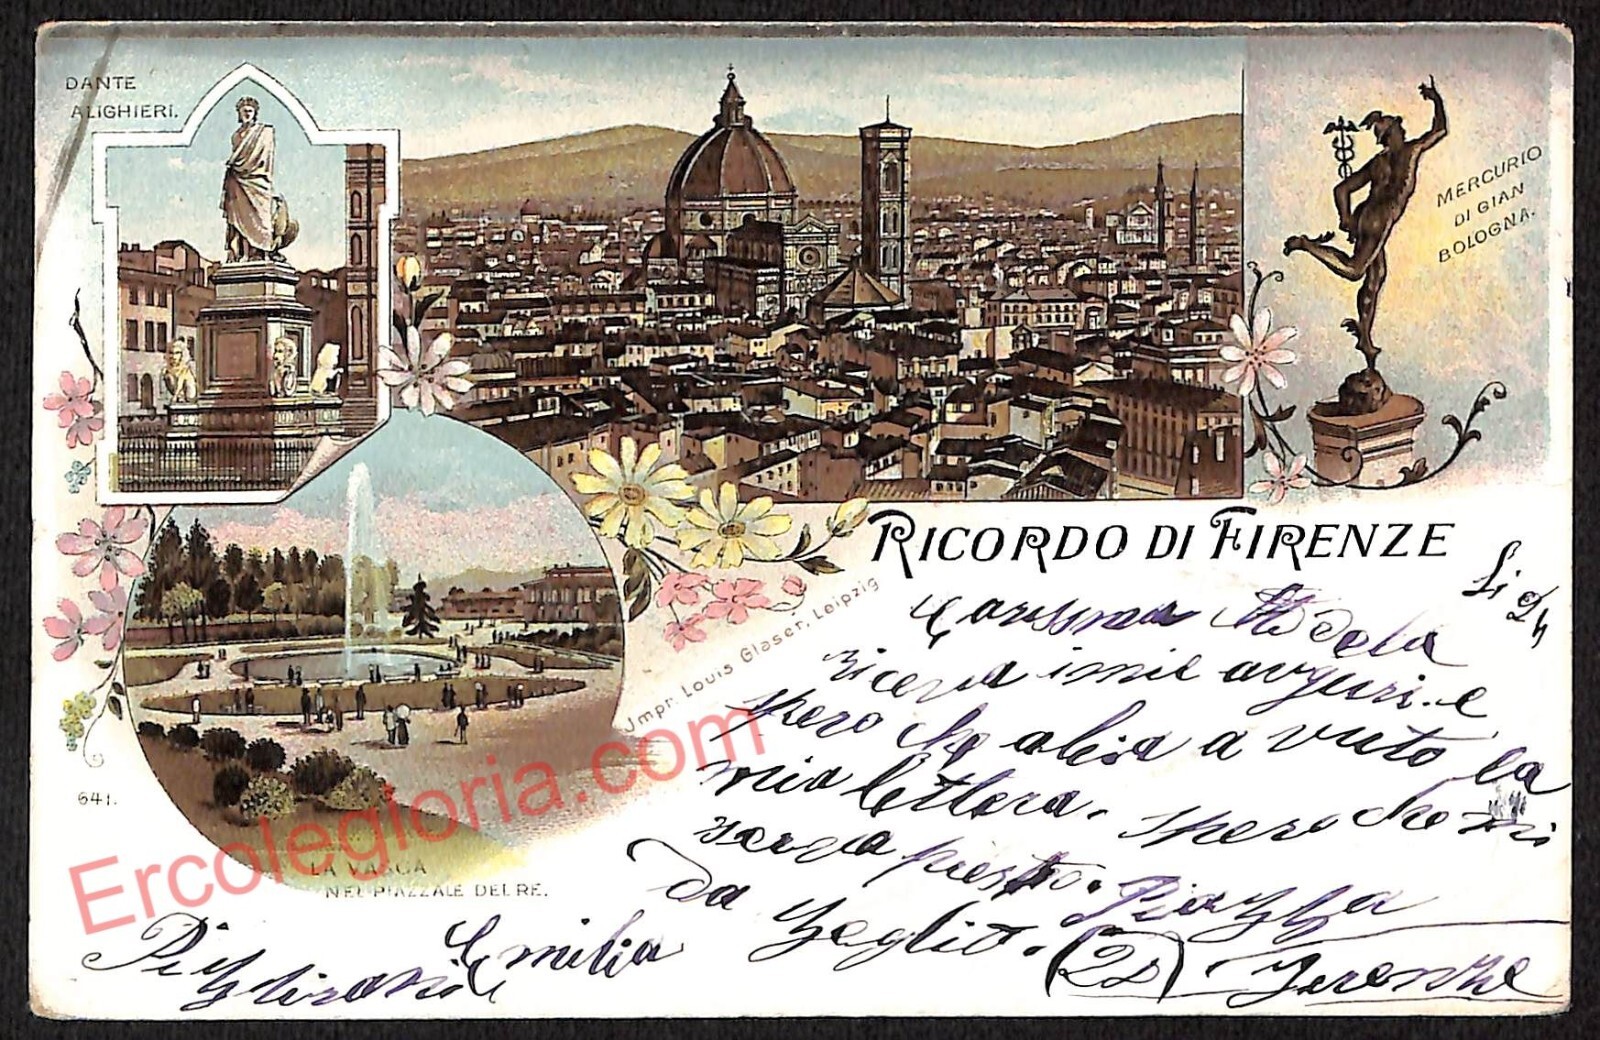 DANTE
ALIGHIERI.
MERCURIO
DI GIAN
BOLOGNA.
RICORDO DI FIRENZE
Li 24
Carissima Adela
riceva i miei auguri. e
spero che abia a vuto la
mia lettera. spero che mi
scriva presto. Piazza
da
(22) Firenze
Emilia
Impr. Louis Glaser, Leipzig
641.
LA VASCA
NEL PIAZZALE DEL RE.
Ercolegioria.com